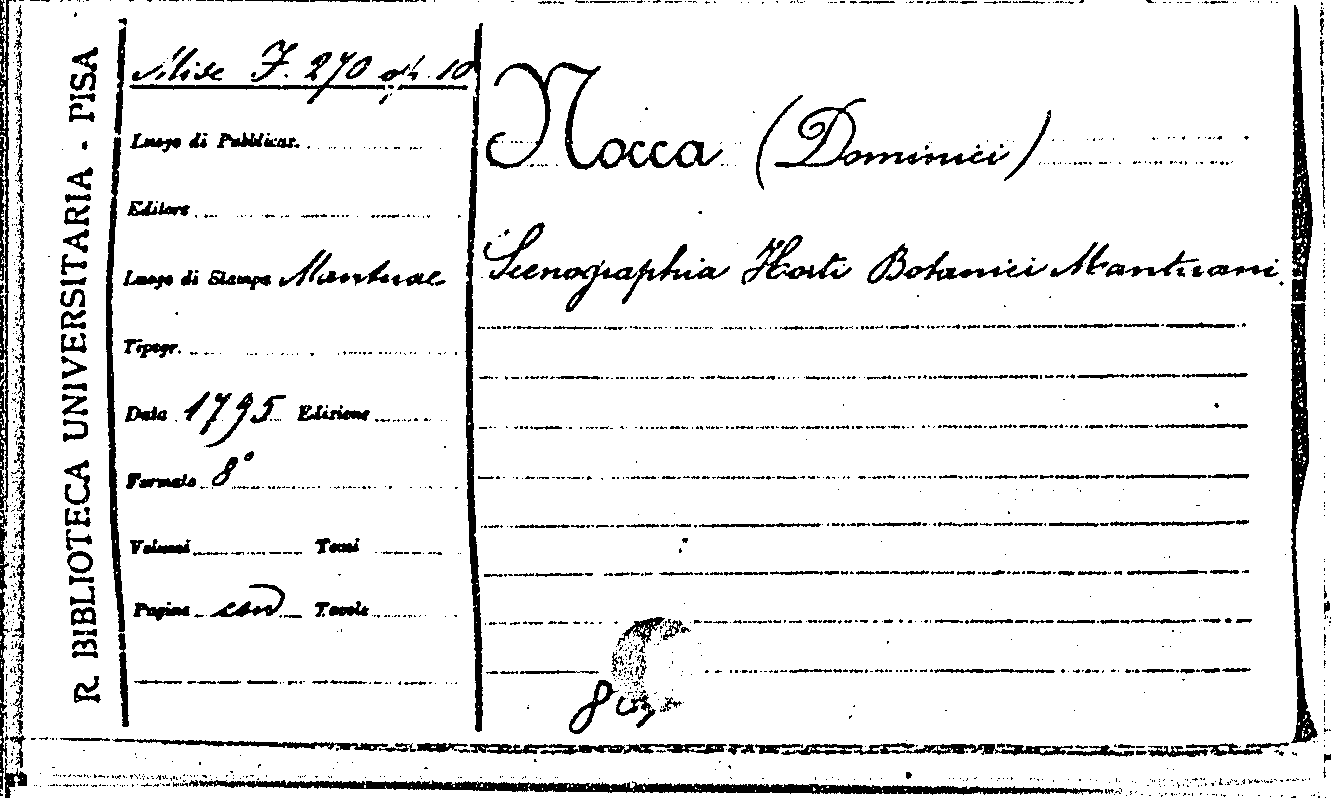 R. BIBLIOTECA UNIVERSITARIA - PISA
Misc F. 270 op. 10
Luogo di Pubblicaz.
Editore
Luogo di Stampa Mantuae
Tipogr.
Data 1795 Edizione
Formato 8°
Volumi Tomi
Pagine Tavole
Nocca (Dominici)
Scenographia Horti Botanici Mantuani.